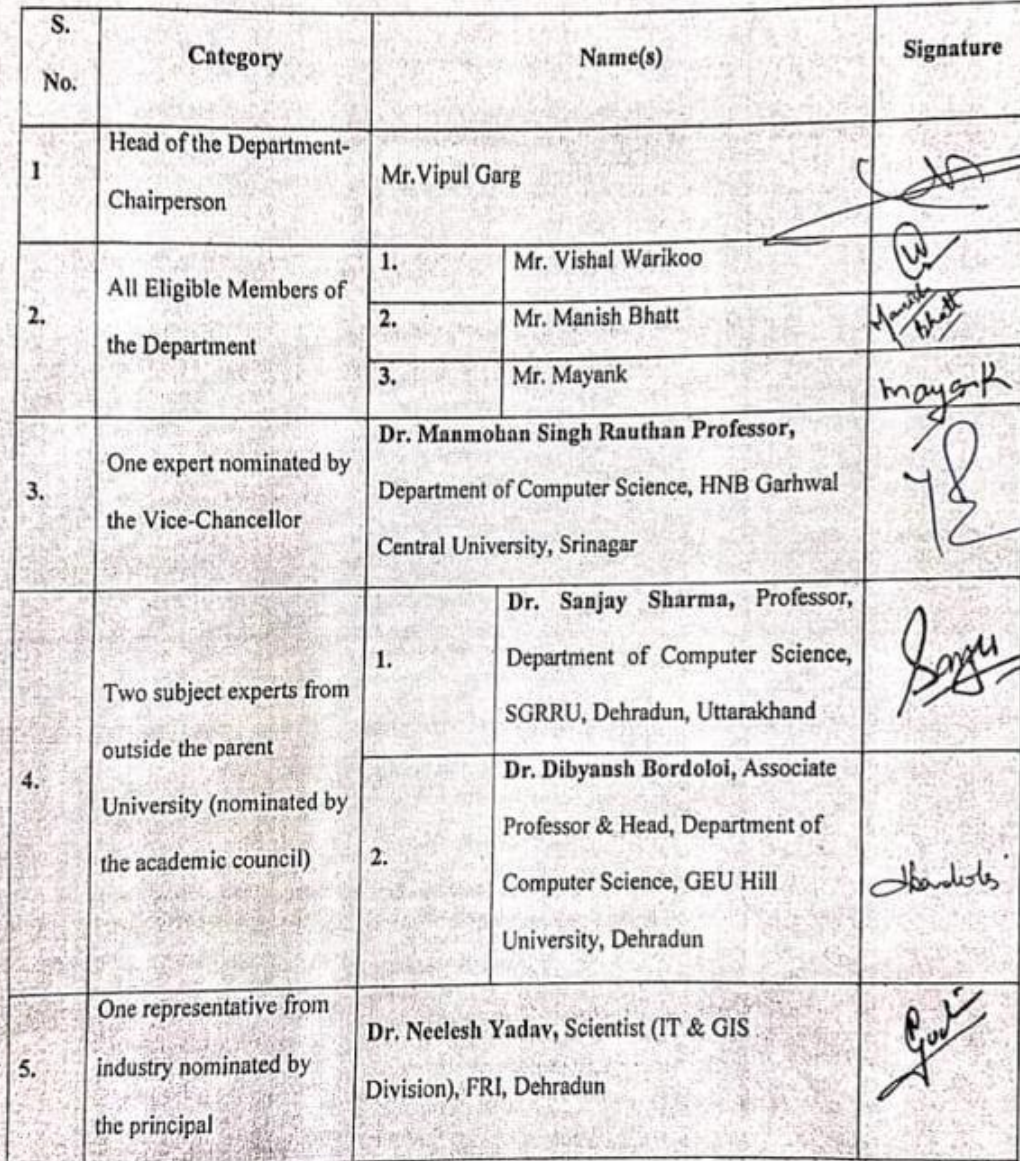 S.
No.
Category
Name(s)
Signature
1
Head of the Department-
Chairperson
Mr.Vipul Garg
2.
All Eligible Members of
the Department
1.
Mr. Vishal Warikoo
2.
Mr. Manish Bhatt
Manish
Bhatt
3.
Mr. Mayank
Mayank
3.
One expert nominated by
the Vice-Chancellor
Dr. Manmohan Singh Rauthan Professor,
Department of Computer Science, HNB Garhwal
Central University, Srinagar
4.
Two subject experts from
outside the parent
University (nominated by
the academic council)
1.
Dr. Sanjay Sharma, Professor,
Department of Computer Science,
SGRRU, Dehradun, Uttarakhand
2.
Dr. Dibyansh Bordoloi, Associate
Professor & Head, Department of
Computer Science, GEU Hill
University, Dehradun
5.
One representative from
industry nominated by
the principal
Dr. Neelesh Yadav, Scientist (IT & GIS
Division), FRI, Dehradun